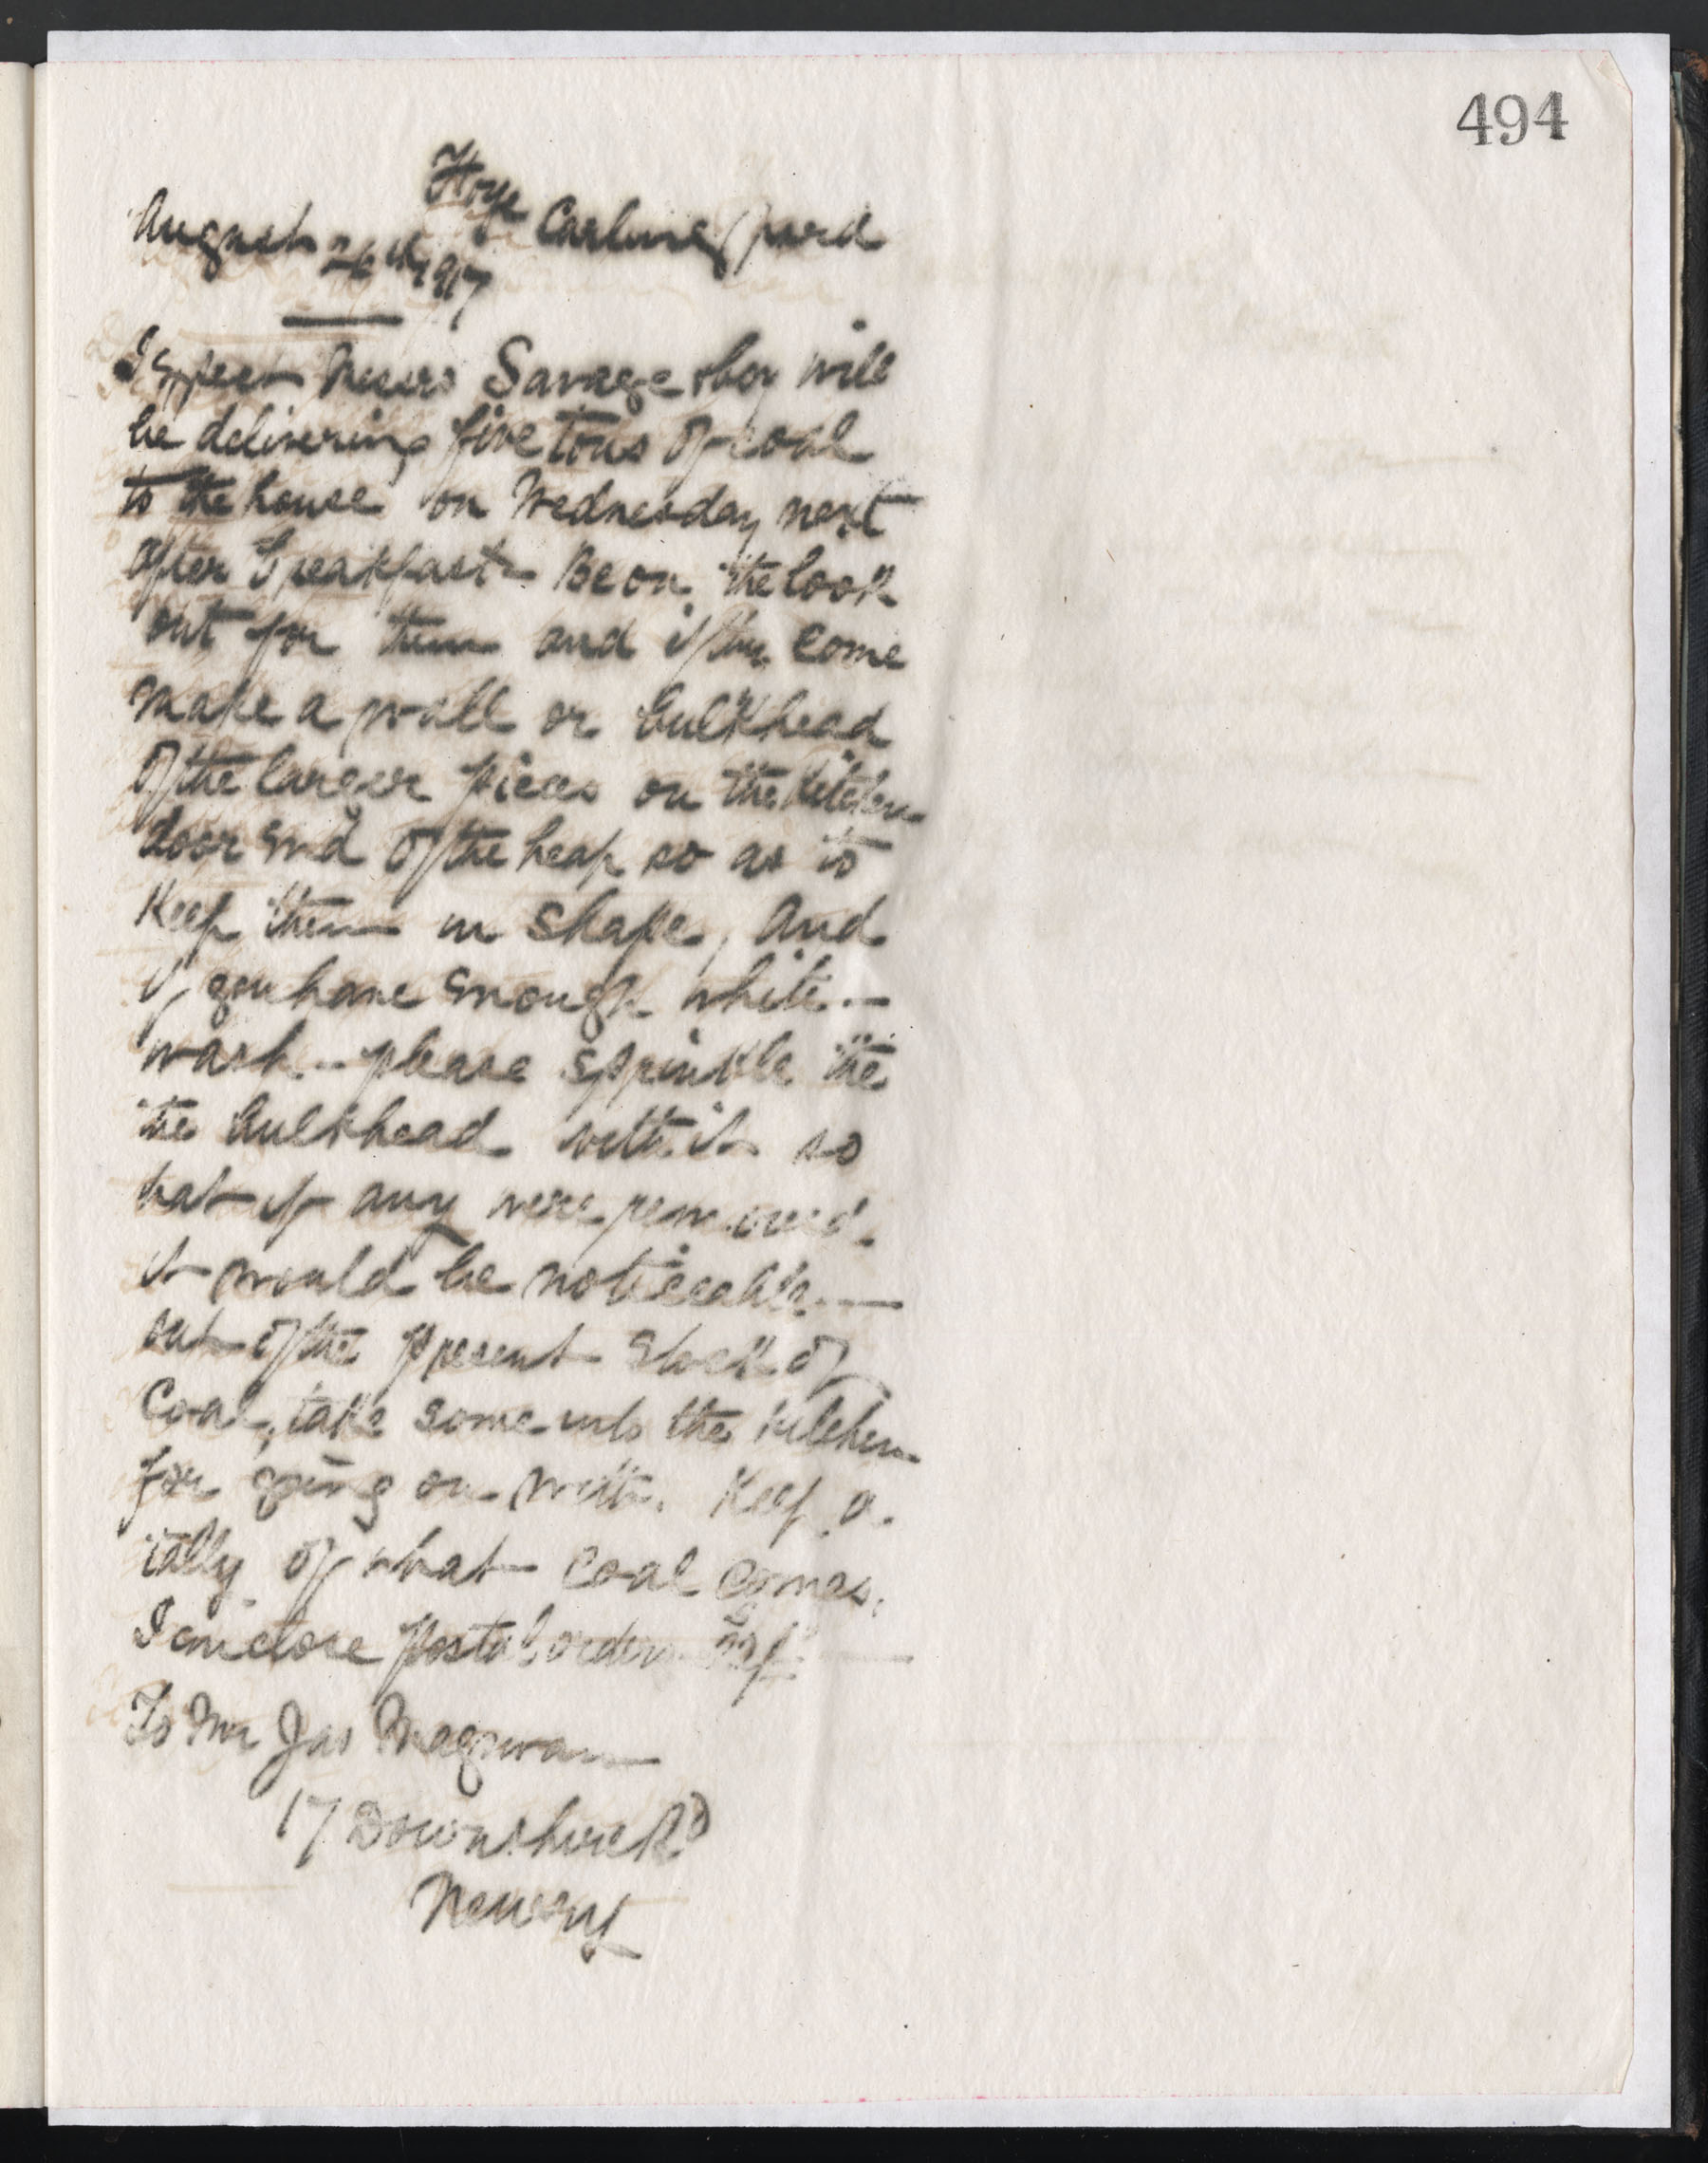 494
Carlingford
August 26th 1917
I expect Messrs Savage & Coy will
be delivering five tons of coal
to the house on Wednesday next
after breakfast. Be on the look
out for them and if they come
make a wall or bulkhead
of the larger pieces on the Kitchen
door end of the heap so as to
Keep them in shape, and
if you have enough white-
wash - please sprinkle the
the bulkhead with it so
that if any were removed
it would be noticeable —
out of the present stock of
Coal, take some into the kitchen
for going on with. Keep a
tally of what coal comes.
I enclose postal orders
To Mr Jas Magowan
17 Downshire Rd
Newry